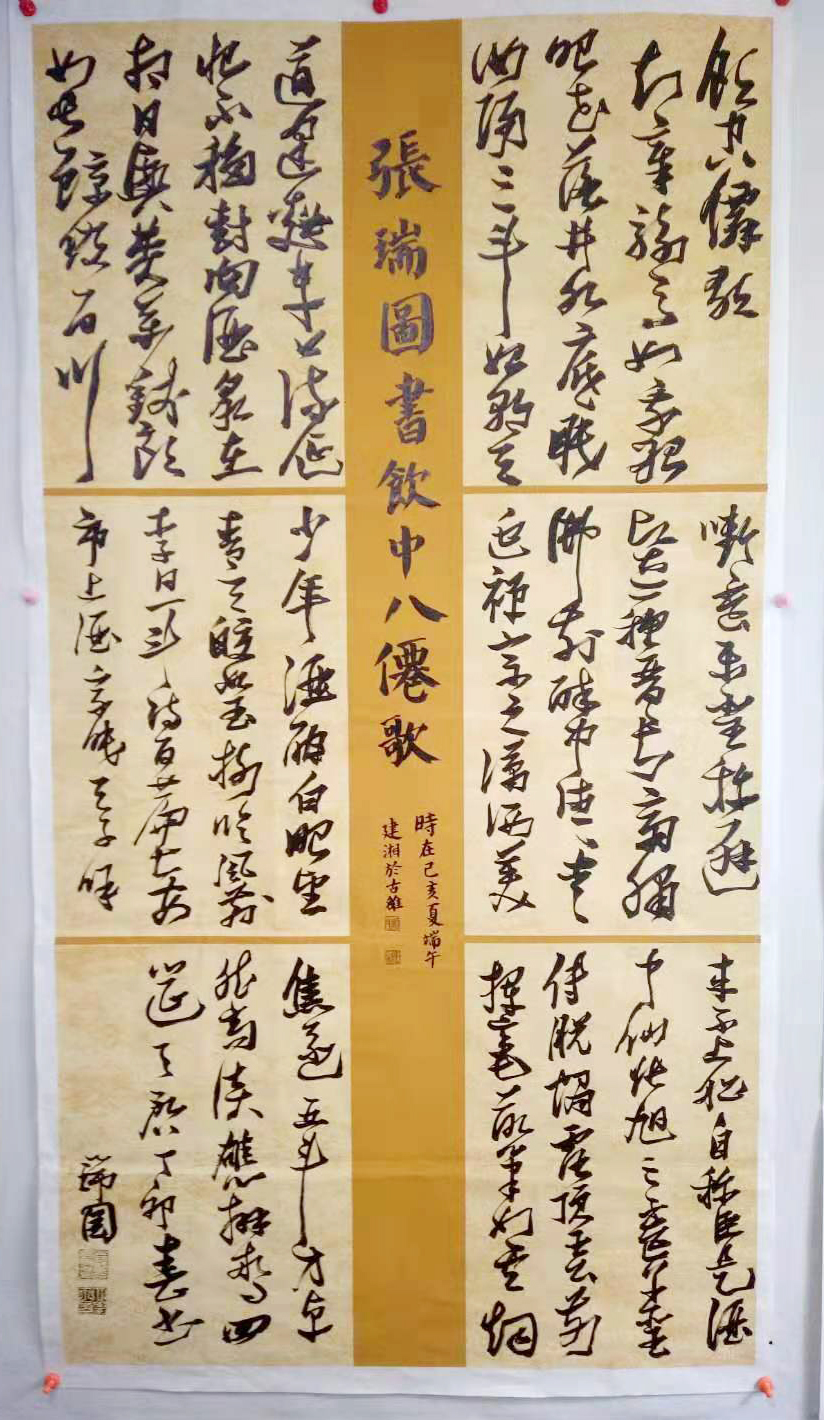 張瑞圖書飲中八僊歌
時在己亥夏端午
建湘於古雒
飲中八僊歌
知章騎馬如乘船
眼花落井水底眠
汝陽三斗始朝天
道逢麯車口流涎
恨不移封向酒泉左
相日興費萬錢飲
如長鯨吸百川
樂聖稱避
蘇晉長齋繡
佛前醉中往往愛
逃禪宗之瀟洒美
少年白眼望
青天皎如玉樹臨風前
李白一斗詩百篇長安
市上酒家眠天子呼
來不上船自稱臣是酒
中仙張旭三杯草聖
傳脫帽露頂王公前
揮毫落筆如雲烟
焦遂五斗方卓
然高談雄辯驚四
筵天啟丁卯春書
瑞圖